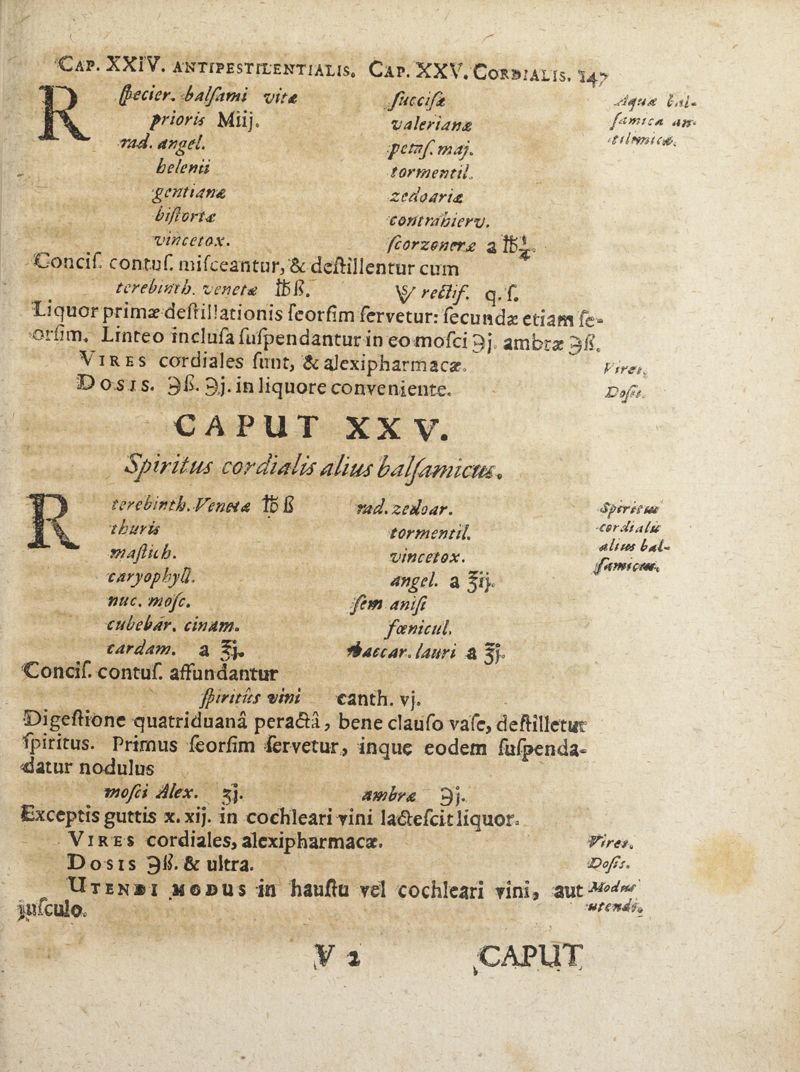 CAP. XXIV. ANTIPESTILENTIALIS. CAP. XXV. CORDIALIS. 147
℞ ſpecier. balſami vitæ
prioris Miij.
rad. angel.
helenii
gentianæ
biſtortæ
vincetox.
ſucciſæ
valerianæ
petaſ. maj.
tormentil.
zedoariæ
contrahierv.
ſcorzoneræ a ℔
Aquæ bal-
ſamica an-
Conciſ. contuſ. miſceantur, & deſtillentur cum
terebinth. venetæ ℔ß. rectiſ. q. ſ.
Liquor primæ deſtillationis ſeorſim ſervetur: ſecundæ etiam ſe-
orſim. Linteo incluſa ſuſpendantur in eo moſci ℈j. ambræ ℈ß.
VIRES cordiales ſunt, & alexipharmacæ.
Vires.
DOSIS. ℈ß. ℈j. in liquore conveniente.
Doſis.
CAPUT XXV.
Spiritus cordialis alius balſamicus.
℞ terebinth. Venetæ ℔ ß
thuris
maſtich.
caryophyll.
nuc. moſc.
cubebar. cinam.
cardam. a ℥j.
rad. zedoar.
tormentil.
vincetox.
angel. a ℥ij.
ſem aniſi
fœnicul.
baccar. lauri a ℥j.
Spiritus
cordialis
alius bal-
ſamicus.
Conciſ. contuſ. affundantur
ſpiritûs vini canth. vj.
Digeſtione quatriduanâ peractâ, bene clauſo vaſe, deſtilletur
ſpiritus. Primus ſeorſim ſervetur, inque eodem ſuſpenda-
datur nodulus
moſci Alex. ʒj. ambræ ℈j.
Exceptis guttis x. xij. in cochleari vini lacteſcit liquor.
VIRES cordiales, alexipharmacæ.
Vires.
DOSIS ℈ß. & ultra.
Doſis.
UTENDI MODUS in hauſtu vel cochleari vini, aut
Modus
juſculo.
utendi.
V 2 CAPUT